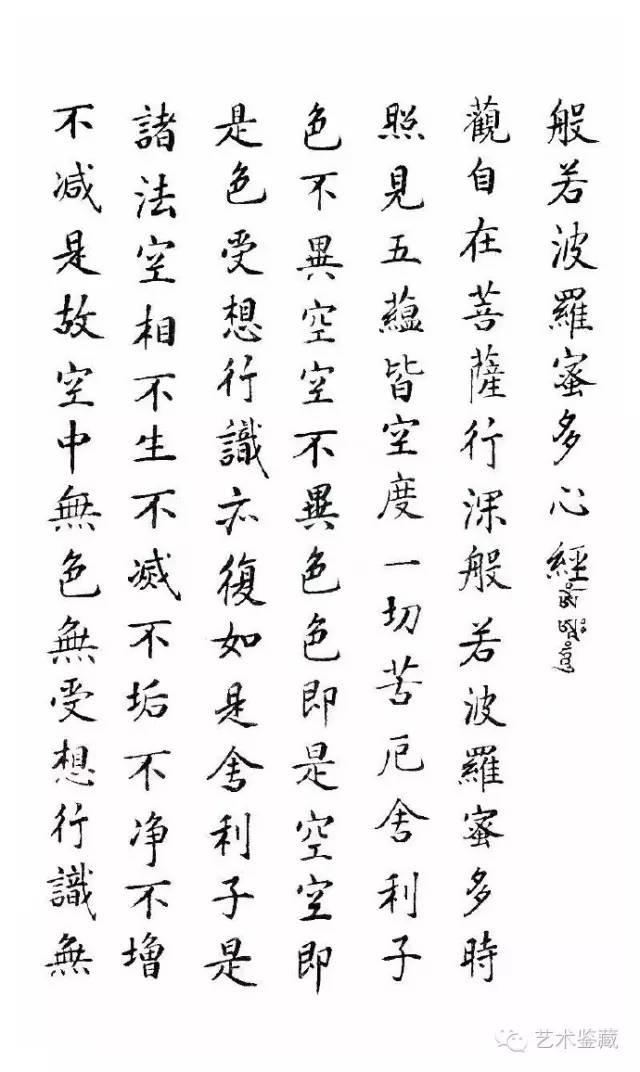 般若波羅蜜多心經
觀自在菩薩行深般若波羅蜜多時
照見五蘊皆空度一切苦厄舍利子
色不異空空不異色色即是空空即
是色受想行識亦復如是舍利子是
諸法空相不生不滅不垢不净不增
不减是故空中無色無受想行識無
艺术鉴藏